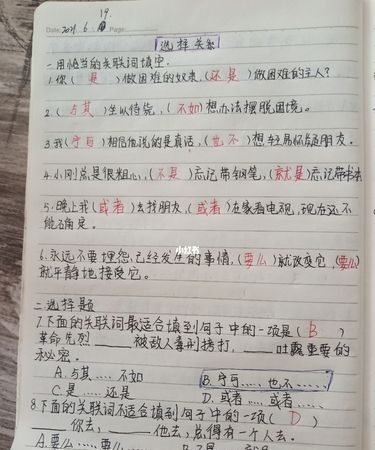 19.
Date: 2021.6. Page:
选择关系
一.用恰当的关联词填空.
1.你(是)做困难的奴隶,(还是)做困难的主人?
2.(与其)坐以待毙,(不如)想办法摆脱困境。
3.我(宁可)相信他说的是真话,(也不)想轻易怀疑朋友。
4.小刚总是很粗心,(不是)忘记带钢笔,(就是)忘记带书本
5.晚上我(或者)去找朋友,(或者)在家看电视,现在还不
能确定。
6.永远不要埋怨已经发生的事情,(要么)就改变它,(要么)
就平静地接受它。
小红书
二.选择题
7.下面的关联词最适合填到句子中的一项是(B)
革命先烈____被敌人毒刑拷打,____吐露重要的
秘密。
A.与其……不如 B.宁可……也不……
C.是……还是 D.或者……或者……
8.下面的关联词不适合填到句子中的一项(D)
____你去,____他去,总得有一个人去。
A.要么……要么……